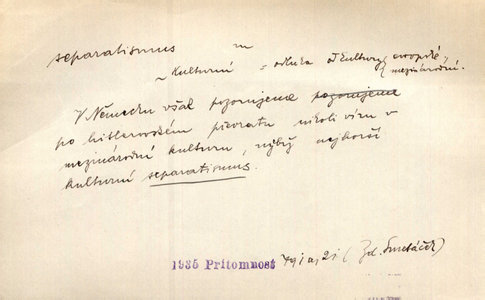 separatismus m
~ kulturní = odluka od kultury evropské,
mezinárodní.
V Německu však pozorujeme pozorujeme
po hitlerovském převratu nikoli víru v
mezinárodní kulturu, nýbrž nejhorší
kulturní separatismus.
1935 Přítomnost 791a, 21 (Zd. Smetáček)